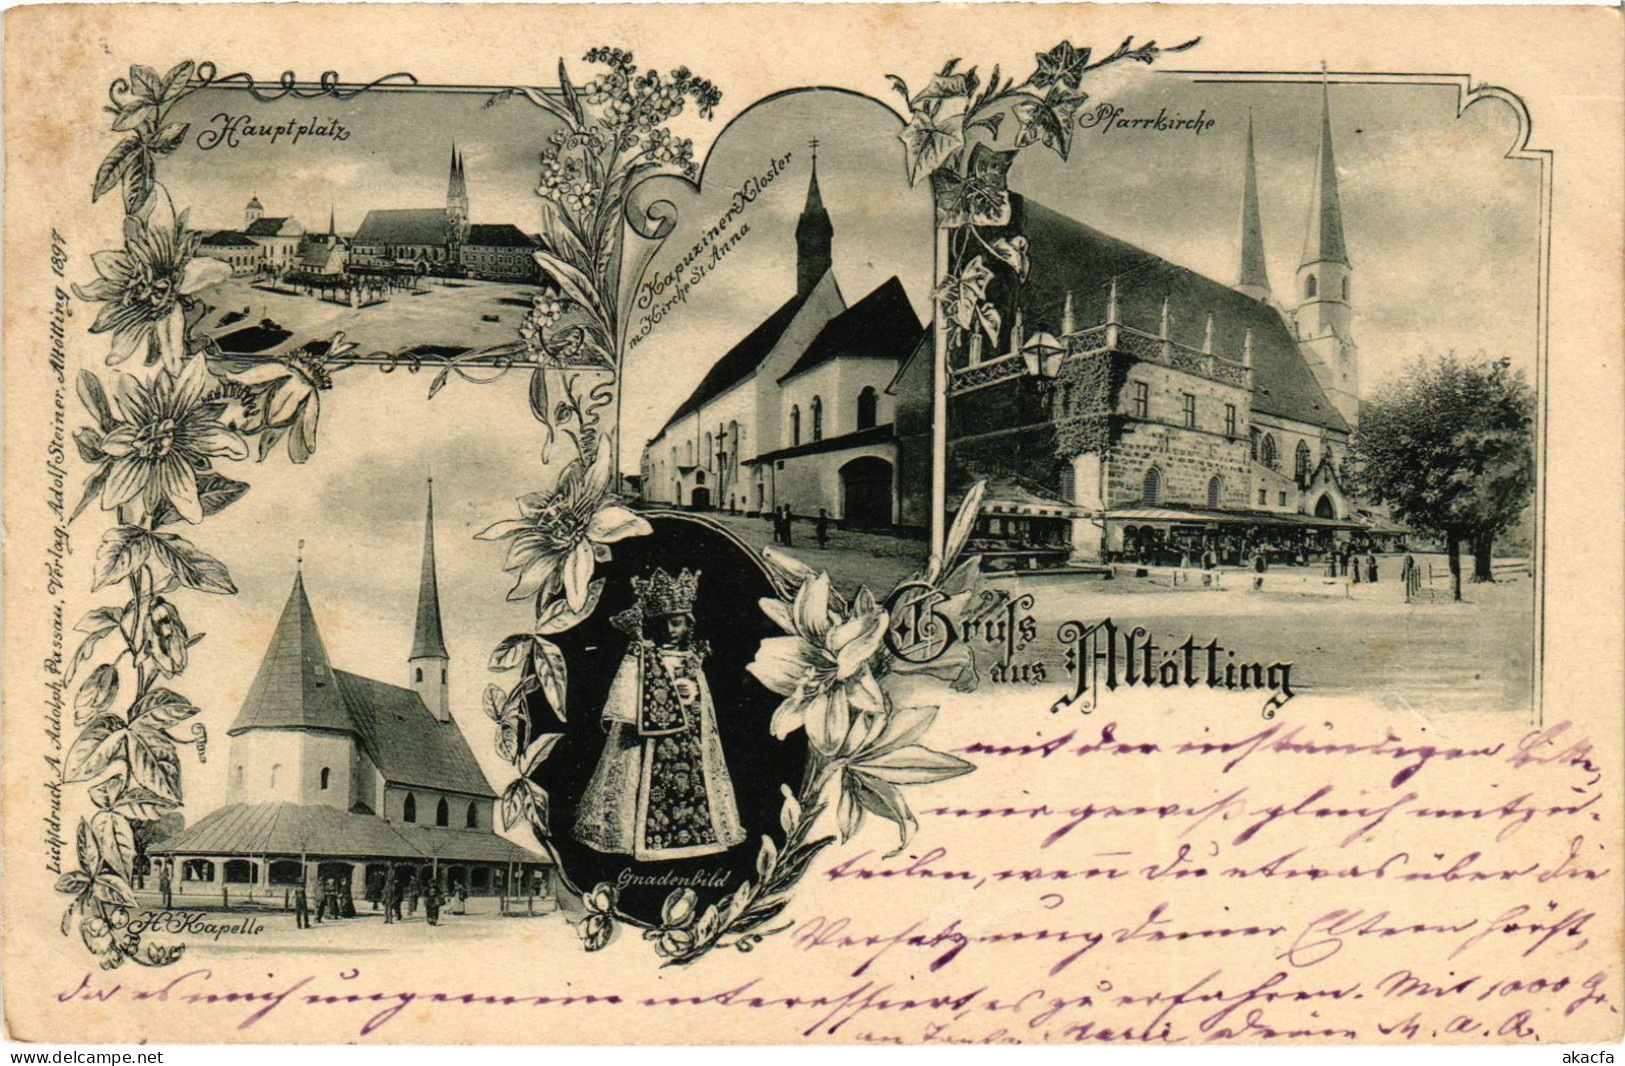 Hauptplatz
Kapuziner Kloster
m. Kirche St. Anna
Pfarrkirche
Lichtdruck A. Adolph, Passau, Verlag, Adolf Steiner, Altötting 1897
H. Kapelle
Gnadenbild
Gruss
aus Altötting
mit der inständigen Bitte,
mir gewiß gleich mitzu-
teilen, wen̄ Du etwas über die
Versetzung deiner Eltern hörst,
da es mich ungemein interessiert, es zu erfahren. Mit 1000 Gr.
an Deine M. A. R.
akacfa